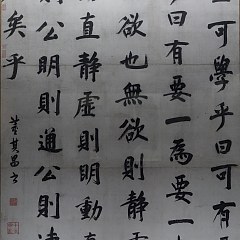 可學乎曰可有
乎曰有要一為要一
欲也無欲則靜
直靜虛則明動
則公明則通公則溥
矣乎
董其昌書